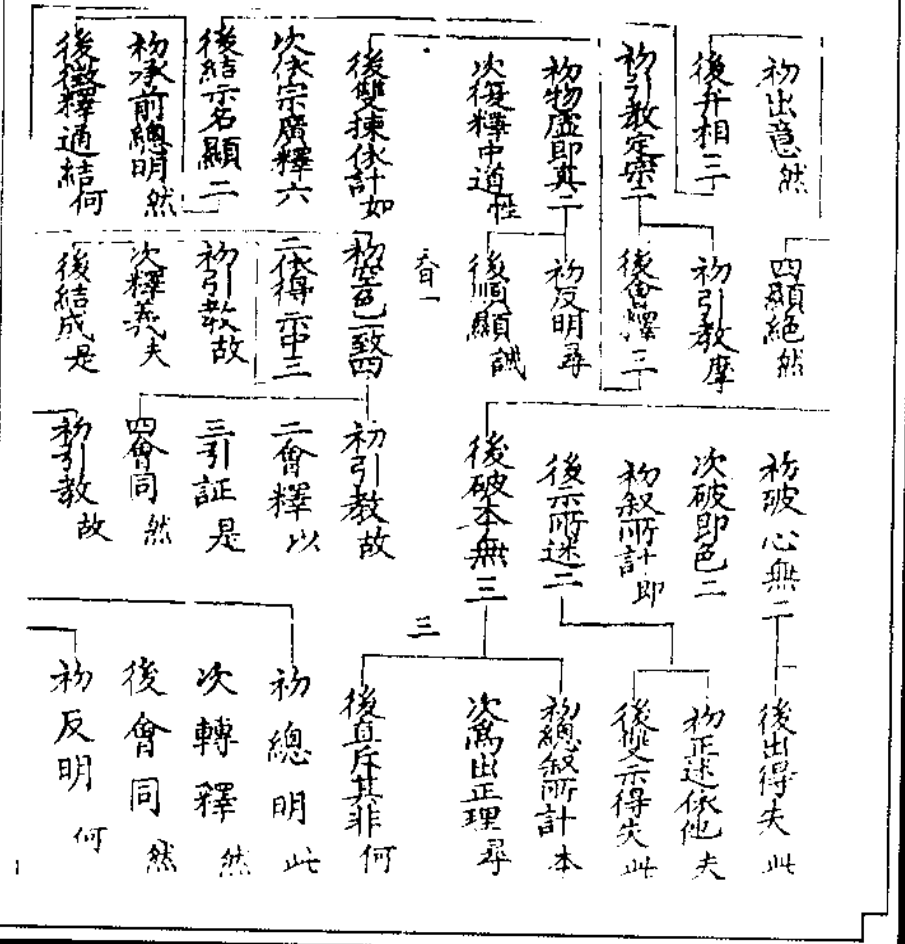 初出意然
後弁相三
初引教定宗二
初物虛即真二
次復釋中道性
後雙揀依計如
次依宗廣釋六
後結示名顯二
初承前總明然
後徵釋通結何
四顯絕然
初引教摩
後會釋三
初反明尋
後順顯誠
初空色一致四
二依得示中三
初引教故
次釋義夫
後結成是
初破心無二
次破即色二
初叙所計即
後示所迷二
後破本無三
初引教故
二會釋以
三引証是
四會同然
初引教故
後出得失此
初正述依他夫
後雙示得失此
初總叙所計本
次為出正理尋
三
後直斥其非何
初總明此
次轉釋然
後會同然
初反明何